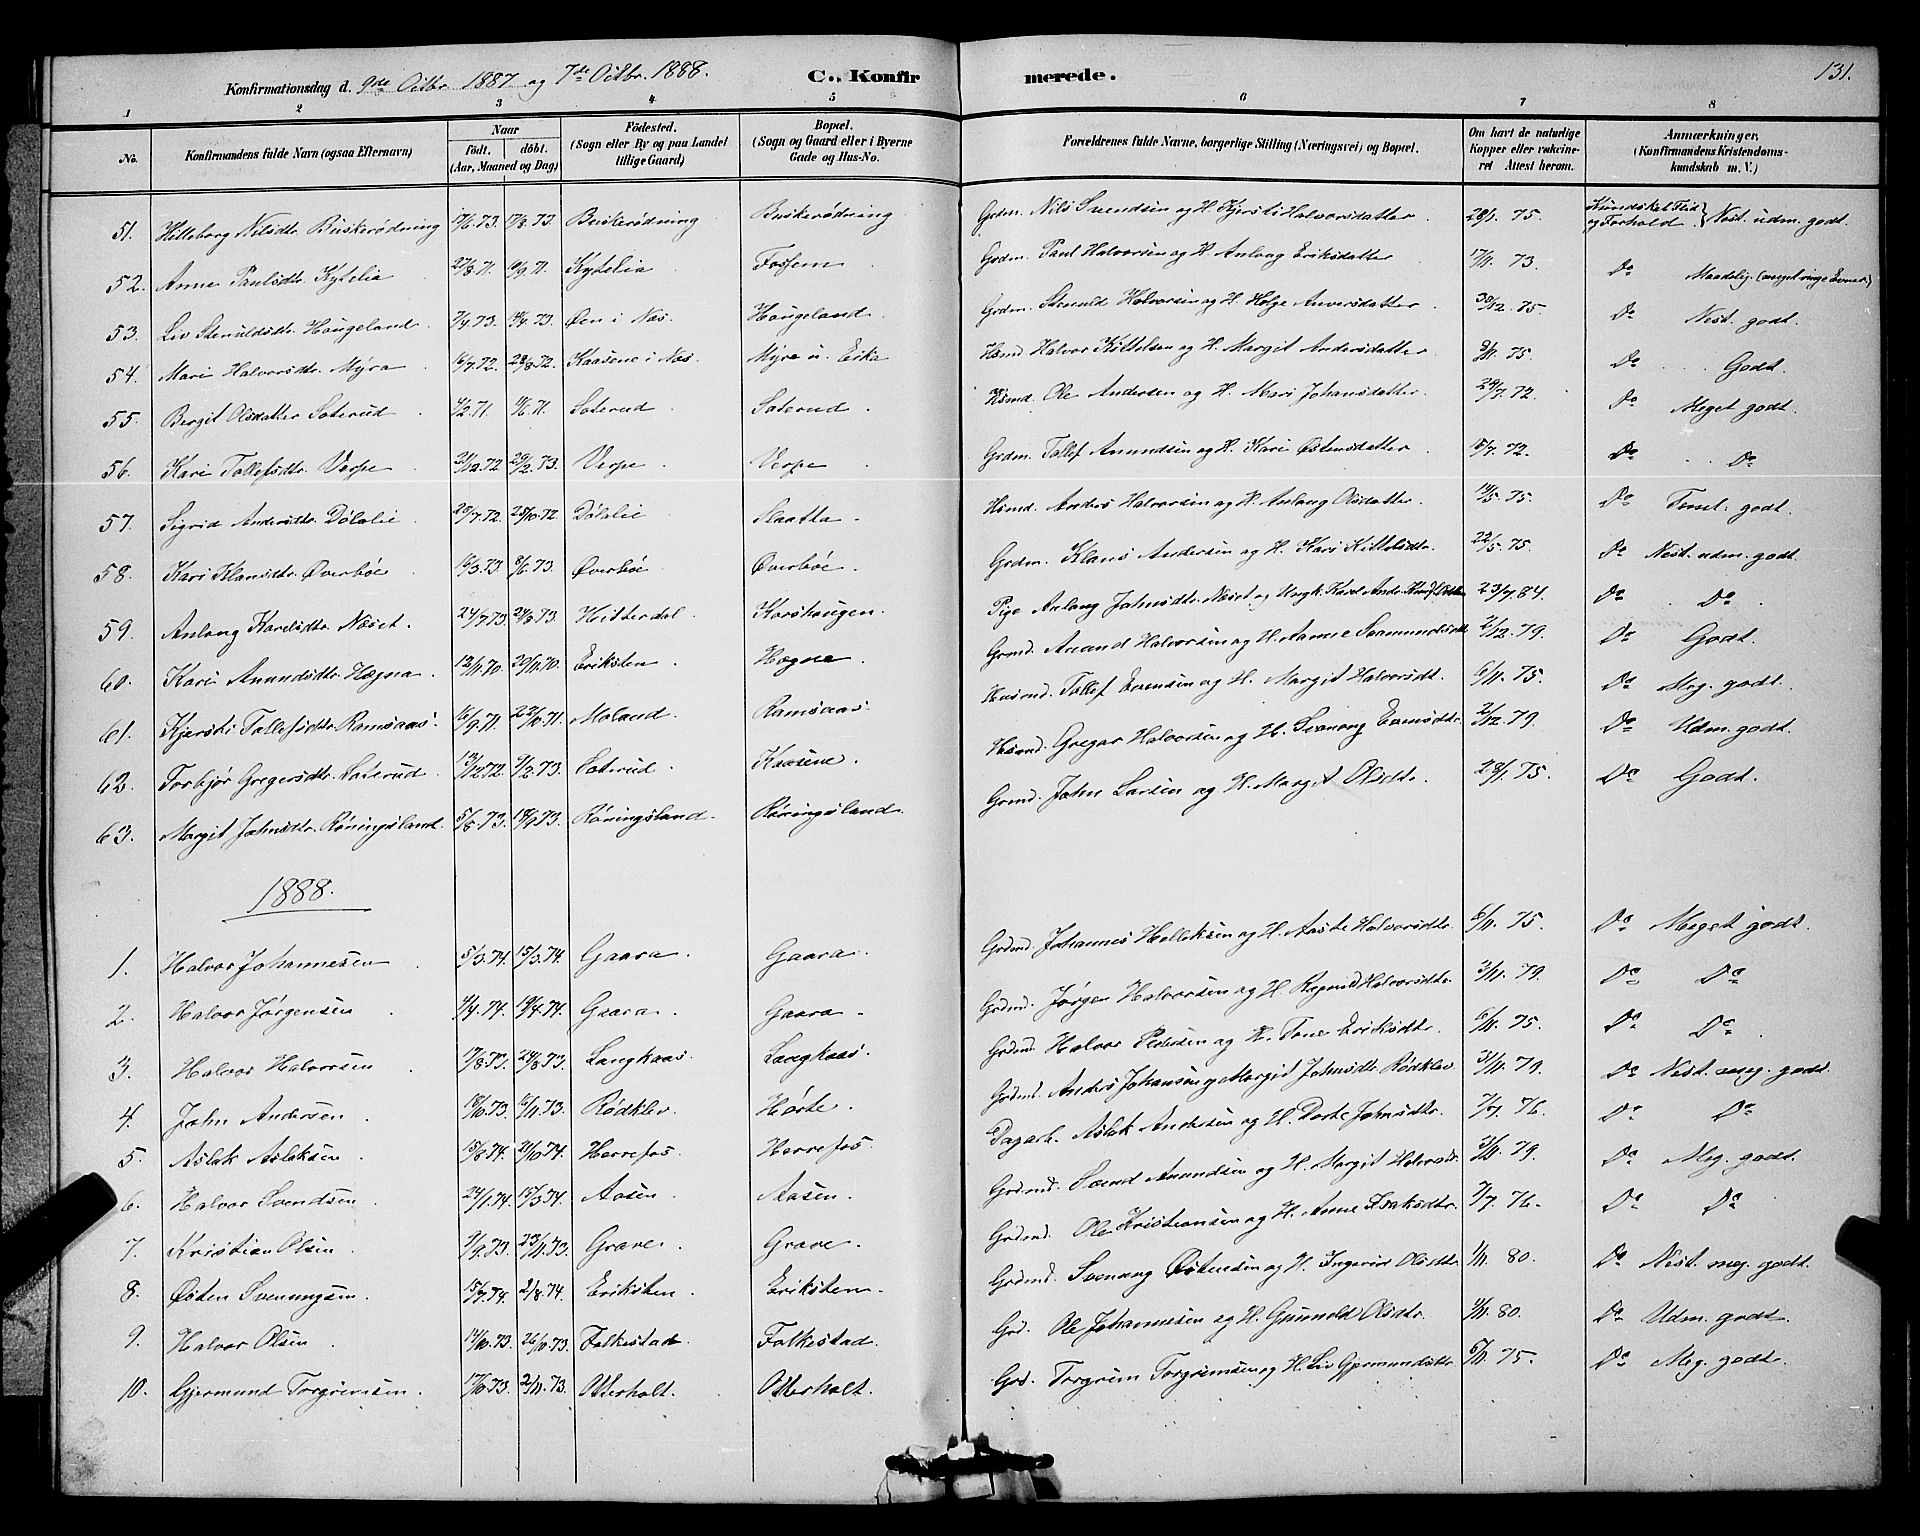 Konfirmationsdag d. 9de Octbr. 1887 og 7de Octbr. 1888. C., Konfirmerede. 131.
1 2 3 4 5 6 7 8
No. Konfirmandens fulde Navn (ogsaa Efternavn) Naar födt. döbt. (Aar, Maaned og Dag) Födested. (Sogn eller By og paa Landet tillige Gaard) Bopæl. (Sogn og Gaard eller i Byerne Gade og Hus-No. Forældrenes fulde Navne, borgerlige Stilling (Næringsvei) og Bopæl. Om havt de naturlige Kopper eller vakcineret Attest herom. Anmærkninger. (Konfirmandens Kristendomskundskab m. V.)
51. Hilleborg Nilsdtr. Buskerødning 17/8.73. Buskerødning Buskerødning Grdm. Nils Svendsen og H. Kjersti Halvorsdatter. 28/1. 75. Kundskab Flid og Forhold Nest. udm. godt.
52. Anne Paulsdtr. Kytelia 27/8.71. 10/9.71. Kytelia Fossem Grdm. Paul Halvorsen og H. Anlaug Eriksdatter 17/11. 73. Do Maadelig. (meget ringe Evner)
53. Liv Stenuldsdtr. Haugeland. 7/4.73. 14/4.73. Øen i Næs. Haugeland. Grdm. Stenuld Halvorsen og H. Helge Anversdatter. 30/12. 75. Do Nest. godt.
54. Mari Halvorsdtr. Myra 16/7.72. 28/8.72. Kaasene i Næs. Myra u. Erika Hsmd. Halvor Kittelsen og H. Margit Andersdatter. 8/11. 75. Do Godt.
55. Bergit Olsdatter Saterud 4/2.71. 11/6.71. Saterud Saterud. Hsmd. Ole Andersen og H. Mari Johansdatter. 29/7. 72. Do Meget godt.
56. Kari Tollefsdtr. Verpe 31/12.72. 29/2.73. Verpe Verpe Grdm. Tollef Amundsen og H. Kari Østensdatter. 15/7. 72. Do Do
57. Sigrid Andersdtr. Dølalie 20/7.72. 25/10.72. Dølalie Slaatta. Hsmd. Anders Halvorsen og H. Anlaug Olsdatter. 14/5. 75. Do Temel. godt.
58. Kari Klausdtr. Øverbøe 16/3.73. 8/6.73. Øverbøe Øverbøe. Grdm. Klaus Andersen og H. Kari Kittelsdtr. 22/5. 75. Do Nest. udm. godt.
59. Anlaug Karelsdtr. Næset. 24/7.73. 24/8.73. Hitterdal. Korshaugen. Pige Anlaug Johnsdtr. Næset og Ungk. Karel 23/7.84. Do Do
60. Kari Amundsdtr. Hægna. 12/11.70. 20/11.70. Eriksten. Hægna. Grmd. Amund Halvorsen og H. Aamie Saamundsdtr. 2/12. 79. Do Godt.
61. Kjersti Tollefsdtr. Ramsaas. 16/9.71. 22/10.71. Moland. Ramsaas. Husmd. Tollef Evensen og H. Margit Halvorsdt. 6/11. 75. Do Meg. godt.
62. Torbjør Gregersdtr. Saterud. 13/12.72. 9/2.73. Saterud. Kaasene. Husmd. Gregar Halvorsen og H. Svanaug Evensdtr. 2/12. 79. Do Udm. godt.
63. Margit Johnsdtr. Røningsland. 5/5.73. Røningsland. Røningsland. Grmd. John Larsen og H. Margit Olsdtr. 28/1. 75. Do Godt.
1888.
1. Halvor Johannesen 5/3.74. 15/3.74. Gaara. Gaara. Grdmd. Johannes Helleksen og H. Aaste Halvorsdtr. 6/11. 75. Do Meget godt.
2. Halvor Jørgensen 4/4.74. 19/4.74. Gaara. Gaara. Grdmd. Jørgen Halvorsen og H. Ragnild Halvorsdtr. 3/11. 79. Do Do
3. Halvor Halvorsen 17/8.73. 24/8.73. Langkaas. Langkaas. Grdmd. Halvor Pedersen og H. Tone Eriksdtr. 6/11. 75. Do Do
4. John Andersen 18/10.73. 16/11.73. Rødklev. Hørte. Grdmd. Anders Johansen og Margit Johnsdtr. Rødklev. 3/11. 79. Do Nest. meg. godt.
5. Aslak Aslaksen 15/8.74. 21/10.74. Herrefos. Herrefos. Dagarb. Aslak Andersen og H. Dorte Johnsdtr. 7/7. 76. Do Do
6. Halvor Svendsen 24/1.74. 15/3.74. Aasen. Aasen. Grdmd. Svend Amundsen og H. Margit Halvorsdtr. 3/11. 79. Do Meg. godt.
7. Kristian Olsen. 9/9.73. 23/11.73. Grave. Grave. Grdmd. Ole Kristiansen og H. Anne Isaksdtr. 7/7. 76. Do Do
8. Østen Sveningsen 15/7.74. 2/8.74. Eriksten. Eriksten. Grdmd. Svenung Østensen og H. Ingerid Olsdtr. 1/11. 80. Do Nest. meg. godt.
9. Halvor Olsen 14/10.73. 26/10.73. Folkestad. Folkestad. Grd. Ole Johannesen og H. Gunuld Olsdtr. 1/11. 80. Do Udm. godt.
10. Gjermund Torgrimsen. 17/10.73. 2/11.73. Otterholt. Otterholt. Grd. Torgrim Torgrimsen og H. Liv Gjermundsdtr. 6/11. 75. Do Meg. godt.